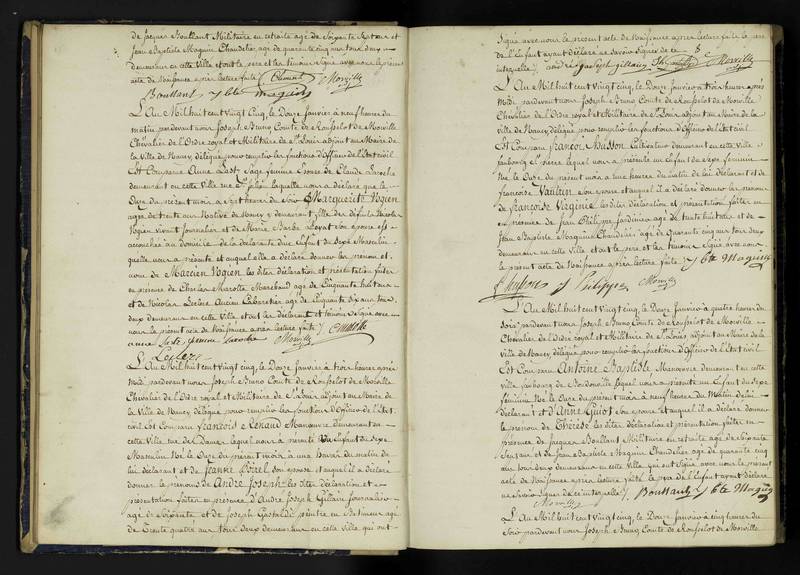 de Jacques Boullant Militaire en retraite agé de Soixante quatre et
Jean Baptiste Maguin Chandelier agé de quarante cinq ans tous deux
demeurans en cette Ville et ont le pere et les temoins signé avec nous le présent
acte de Naissance après lecture faite Morville
Boullant J bte maguin
L'An Mil huit cent Vingt Cinq, le Douze Janvier à neuf heures du
matin pardevant nous Joseph Bruno Comte de Rousselot de Morville
Chevalier de l'Ordre royal et Militaire de St Louis adjoint au Maire de
la Ville de Nancy délégué pour remplir les fonctions d'Officier de l'Etat civil
Est Comparue Anne Laste Sage femme Epouse de Claude Laroche
demeurant en cette Ville rue laquelle nous a déclaré que le
Dix du présent mois à Sept heures du Soir Marguerite Vogien
agée de trente ans Native de Nancy y demeurant fille de défunt Nicolas
Vogien vivant Journalier et de Marie Barbe Loyat son epouse est
accouchée au domicile de la déclarante d'un Enfant du Sexe Masculin
quelle nous a présenté et auquel elle a déclaré donner les prenom et
nom de Marcien Vogien les dites déclaration et présentation faites
en présence de Charles Marotte Marechaud agé de Cinquante huit ans
et de Nicolas Leclerc Ancien Cabaretier agé de Cinquante dix ans tous
deux demeurans en cette Ville et ont les déclarant et temoins signé avec
nous le présent acte de Naissance après lecture faite Marotte
anne laste femme laroche Morville
Leclerc
L'An Mil huit cent Vingt cinq, le Douze Janvier à trois heures après
Midi pardevant nous Joseph Bruno Comte de Rousselot de Morville
Chevalier de l'Ordre royal et Militaire de St Louis adjoint au Maire de
la Ville de Nancy délégué pour remplir les fonctions d'Officier de l'Etat
civil Est Comparu François Renaud Manoeuvre demeurant en
cette Ville rue des Dames lequel nous a présenté un Enfant du Sexe
Masculin Né le Douze du présent mois à une heure du matin de
lui déclarant et de Jeanne Poirel son epouse et auquel il a déclaré
donner les prénoms de André Joseph les dites déclaration et
présentation faites en presence d'André Joseph Gillain Journalier
agé de Soixante et de Joseph peintre en batiment agé
de Trente quatre ans tous deux demeurans en cette Ville qui ont
Signé avec nous le présent acte de Naissance après lecture faite le pere
de l'Enfant ayant déclaré ne savoir signer de ce
interpellé André joseph gillain Morville
L'An Mil huit cent Vingt cinq, le Douze Janvier à trois heures après
Midi pardevant nous Joseph Bruno Comte de Rousselot de Morville
Chevalier de l'Ordre royal et Militaire de St Louis adjoint au Maire de la
Ville de Nancy délégué pour remplir les fonctions d'Officier de l'Etat civil
Est Comparu François Husson Cultivateur demeurant en cette Ville
faubourg St pierre lequel nous a présenté un Enfant du Sexe féminin
Né le Douze du présent mois à une heure du matin de lui déclarant et de
françoise Vautrin son epouse et auquel il a déclaré donner les prenoms
de Françoise Virginie les dites déclaration et présentation faites en
présence de Jean Philippe Jardinier agé de trente huit ans et de
Jean Baptiste Maguin Chandelier agé de Quarante cinq ans tous deux
demeurans en cette Ville et ont le pere et les temoins Signé avec nous
le présent acte de Naissance après lecture faite J bte Maguin
J Philippe Morville
L'An Mil huit cent Vingt cinq, le Douze Janvier à quatre heures du
Soir pardevant nous Joseph Bruno Comte de Rousselot de Morville
Chevalier de l'Ordre royal et Militaire de St Louis adjoint au Maire de la
Ville de Nancy délégué pour remplir les fonctions d'Officier de l'Etat civil
Est Comparu Antoine Baptiste Manoeuvre demeurant en cette
Ville faubourg de lequel nous a présenté un Enfant du Sexe
féminin Né le Douze du présent mois à neuf heures du Matin de lui
déclarant et d'Anne Guiot son epouse et auquel il a déclaré donner
le prénom de Thérèse les dites déclaration et présentation faites en
présence de Jacques Boullant Militaire en retraite agé de Soixante
et de Jean Baptiste Maguin Chandelier agé de quarante cinq
ans tous deux demeurans en cette Ville qui ont signé avec nous le présent
acte de Naissance après lecture faite le pere de l'Enfant ayant déclaré
ne savoir signer de ce interpellé Boullant J bte Maguin
Morville
L'An Mil huit cent Vingt cinq, le Douze Janvier à cinq heures du
Soir pardevant nous Joseph Bruno Comte de Rousselot de Morville